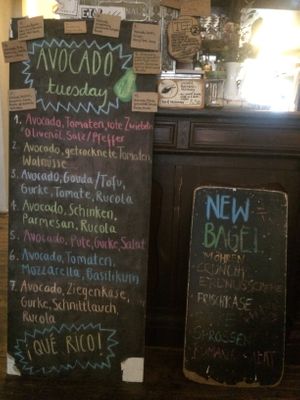 AVOCADO
tuesday
1. Avocado, Tomaten, rote Zwiebeln
Olivenöl, Salz/Pfeffer
2. Avocado, getrocknete Tomaten,
Walnüsse
3. Avocado, Gouda/Tofu,
Gurke, Tomate, Rucola
4. Avocado, Schinken,
Parmesan, Rucola
5. Avocado, Pute, Gurke, Salat
6. Avocado, Tomaten,
Mozzarella, Basilikum
7. Avocado, Ziegenkäse,
Gurke, Schnittlauch,
Rucola
¡QUÉ RICO!
NEW
BAGEL
MÖHREN
FRISCHKÄSE
SPROSSEN